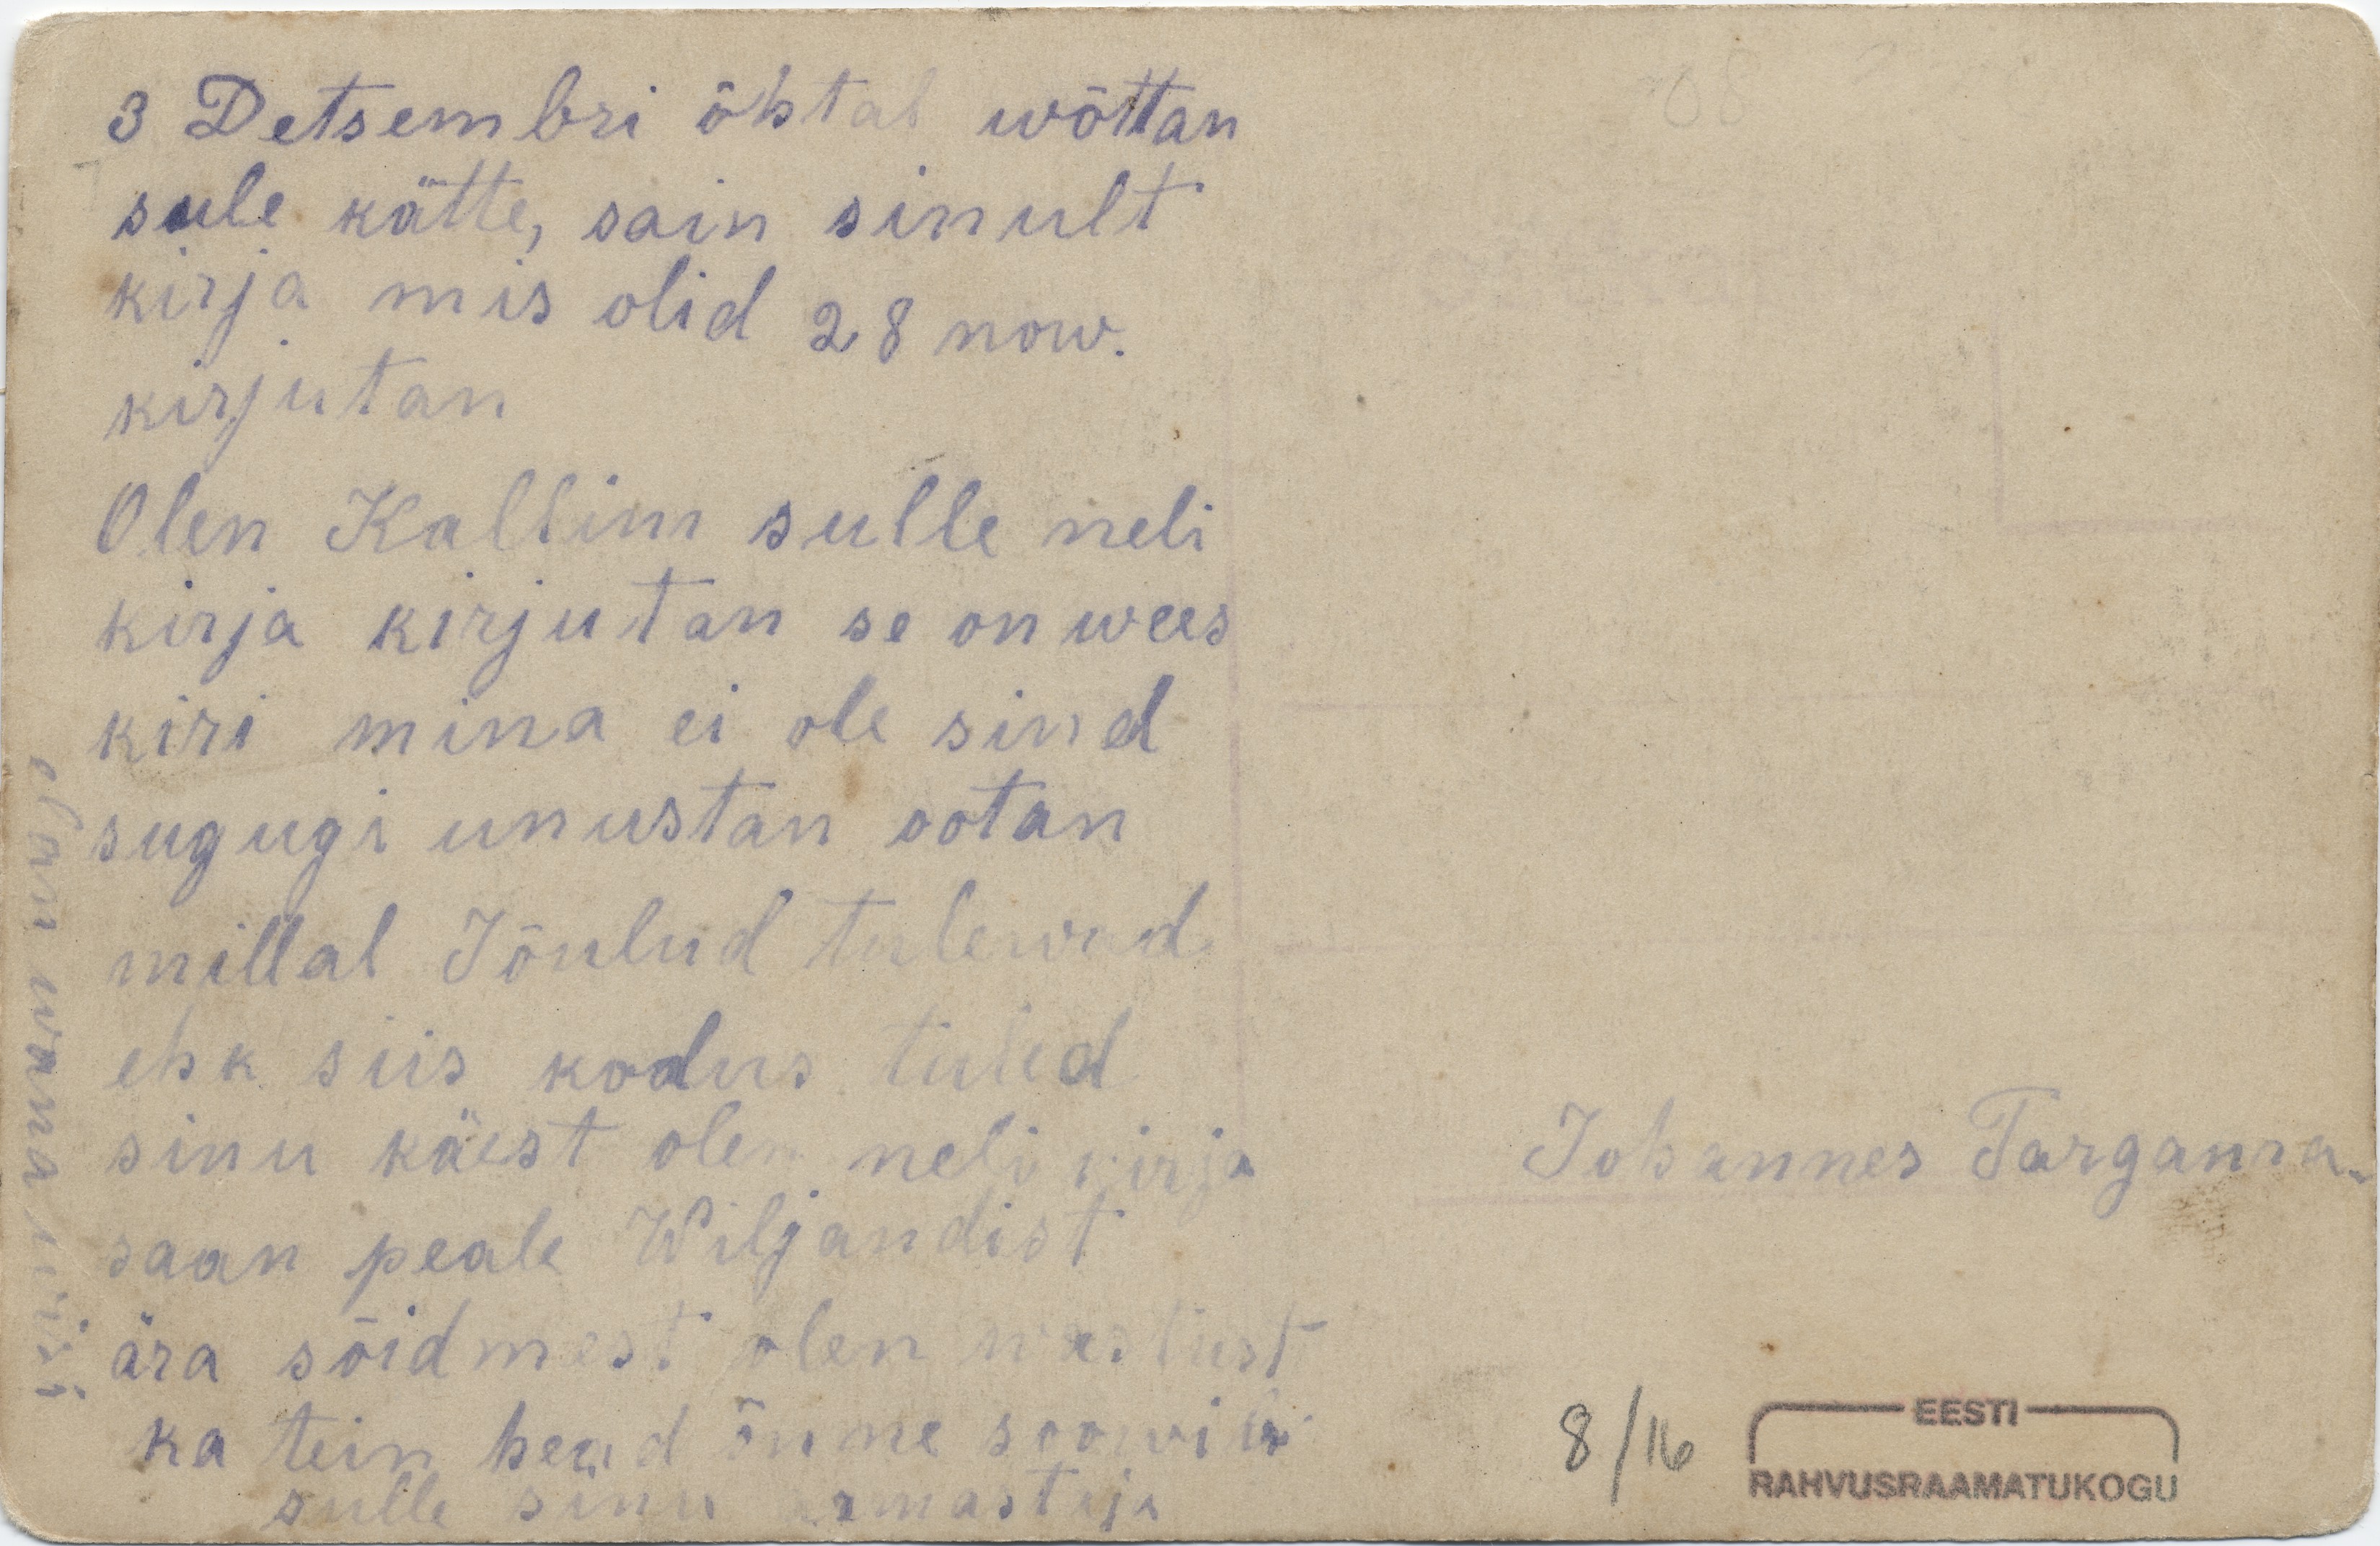 3 Detsembri õhtal wõttan
sule kätte, sain sinult
kirja mis olid 28 now.
kirjutan
Olen Kallim sulle neli
kirja kirjutan se on wees
kiri mina ei ole sind
sugugi unustan ootan
millal Jõulud tulewad
ehk siis kodus tuled
sinu käest olen neli kirja
saan peale Wiljandist
ära sõidmest olen wastust
ka tein head õnne soowin
sulle sinu armastaja
wana
Johannes Targama.
8/16
EESTI
RAHVUSRAAMATUKOGU